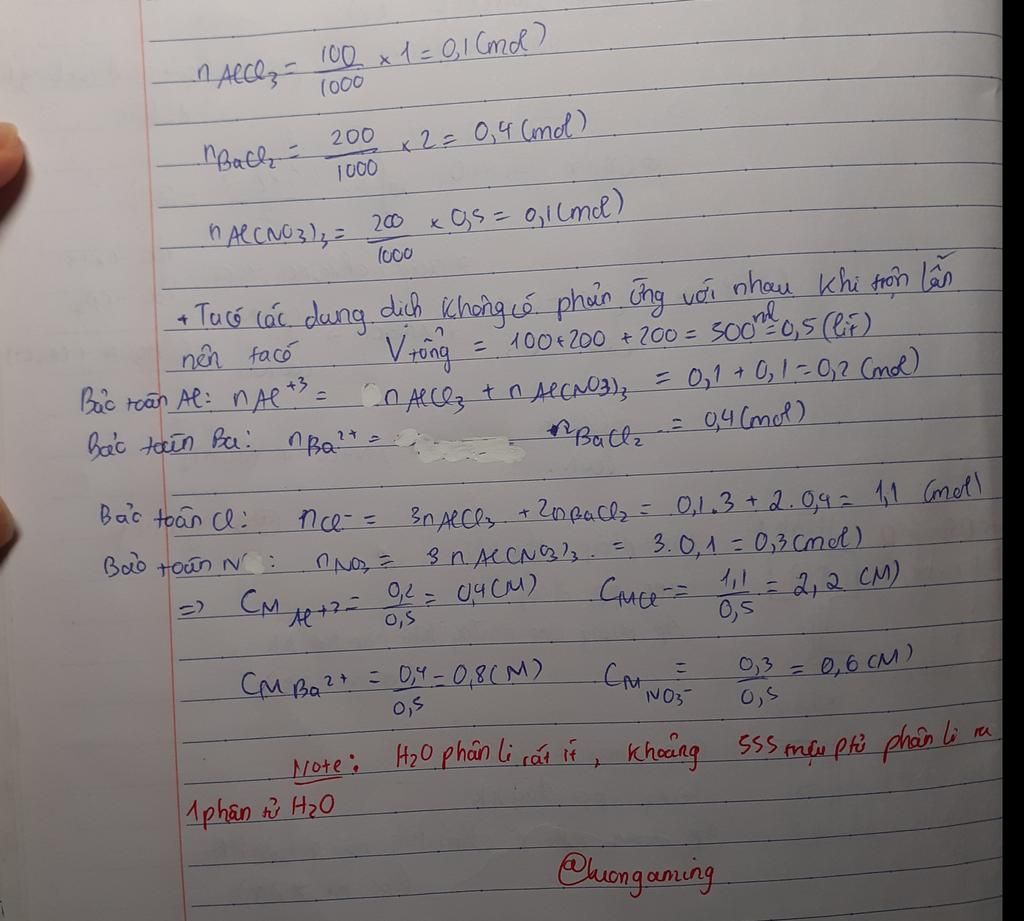 nAlCl3 = 100/1000 × 1 = 0,1 (mol)
nBaCl2 = 200/1000 × 2 = 0,4 (mol)
nAl(NO3)3 = 200/1000 × 0,5 = 0,1 (mol)
+ Ta có các dung dịch không có phản ứng với nhau khi trộn lẫn
nên ta có Vtổng = 100 + 200 + 200 = 500 ml = 0,5 (lít)
Bảo toàn Al: nAl+3 = nAlCl3 + nAl(NO3)3 = 0,1 + 0,1 = 0,2 (mol)
Bảo toàn Ba: nBa2+ = nBaCl2 = 0,4 (mol)
Bảo toàn Cl: nCl- = 3nAlCl3 + 2nBaCl2 = 0,1.3 + 2.0,4 = 1,1 (mol)
Bảo toàn N: nNO3 = 3nAl(NO3)3 = 3.0,1 = 0,3 (mol)
=> CM Al+3 = 0,2/0,5 = 0,4 (M) CM Cl- = 1,1/0,5 = 2,2 (M)
CM Ba2+ = 0,4/0,5 = 0,8 (M) CM NO3- = 0,3/0,5 = 0,6 (M)
Note: H2O phân li rất ít, khoảng 555 phân li ra
1 phân tử H2O
@luongaming